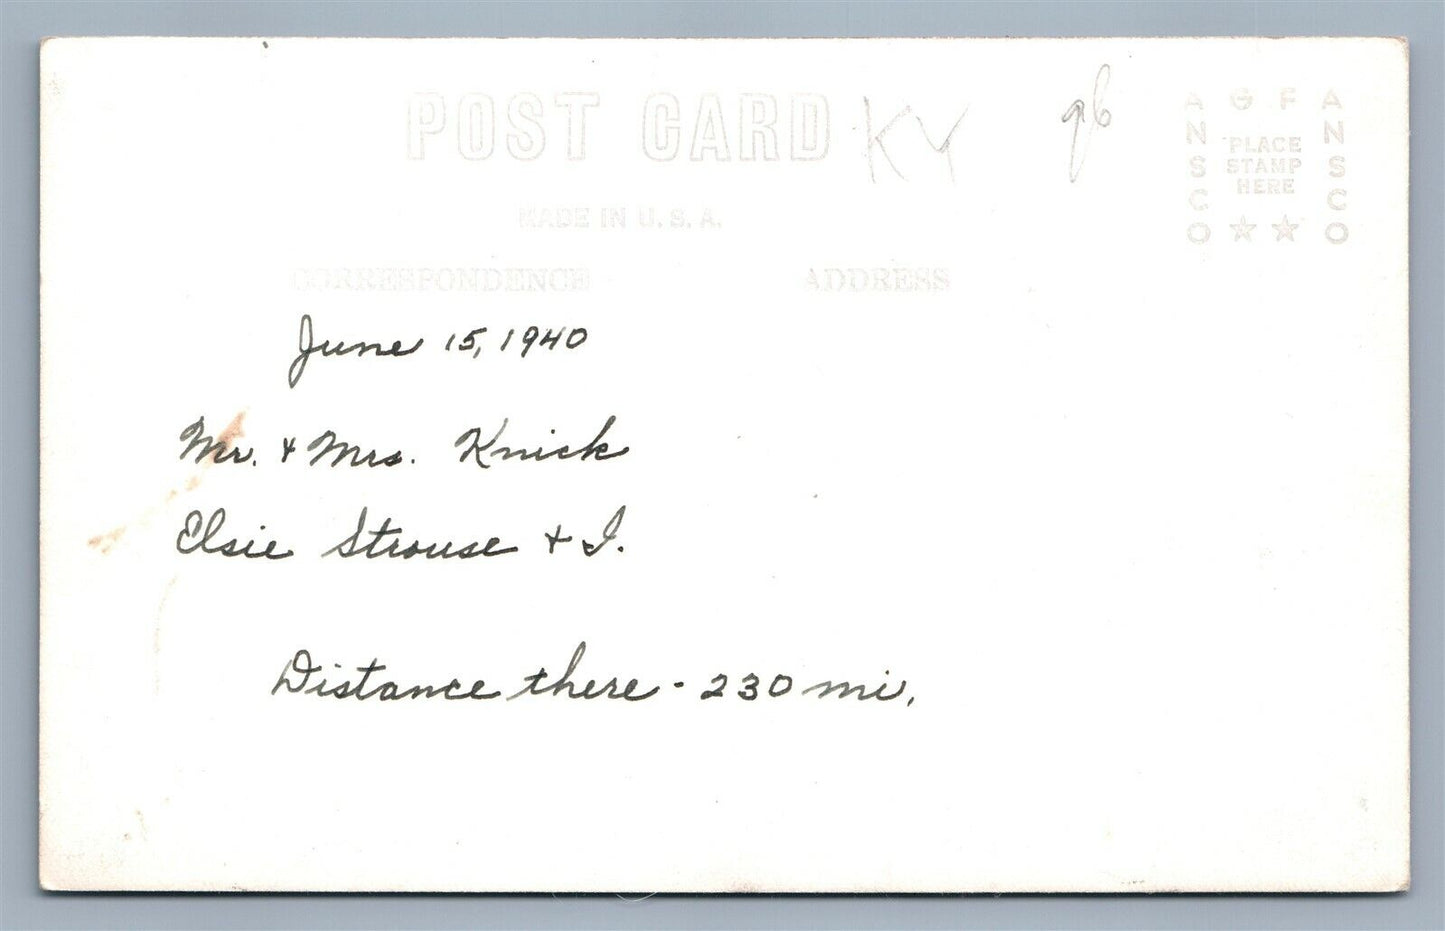 POST CARD KY
MADE IN U.S.A.
CORRESPONDENCE ADDRESS
AGFA
ANSCO
ANSCO
PLACE
STAMP
HERE
June 15, 1940
Mr. + Mrs. Knick
Elsie Strouse + I.
Distance there - 230 mi.